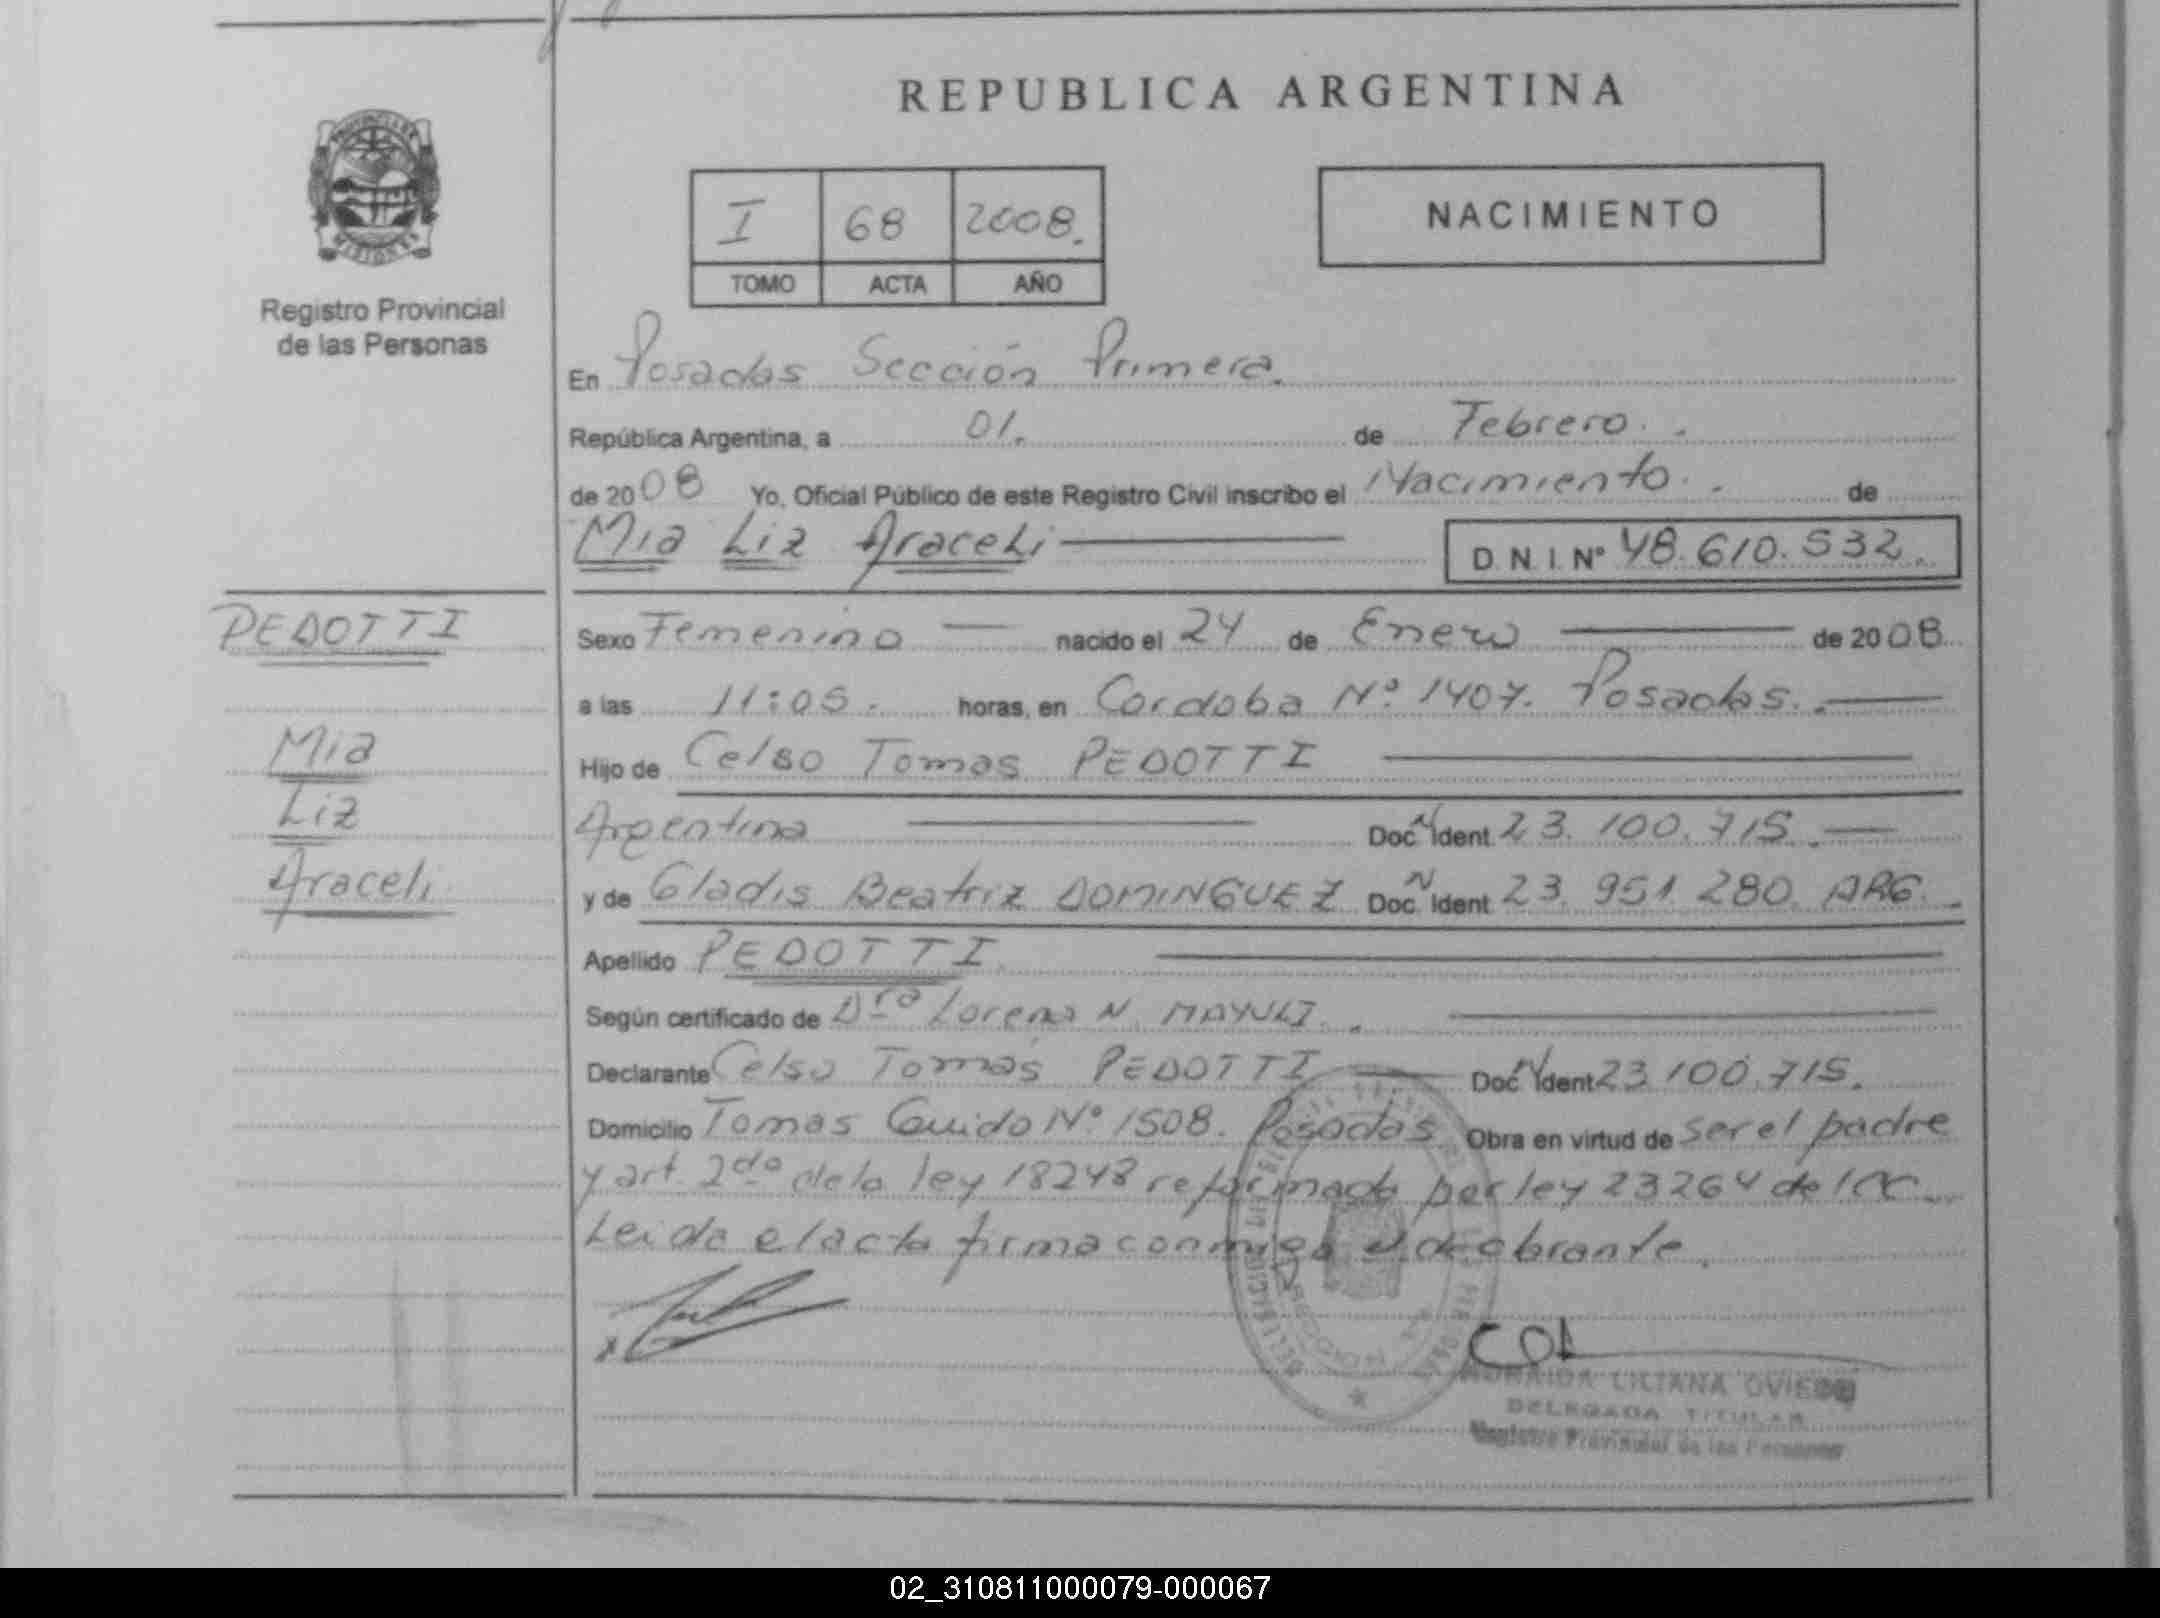 REPUBLICA ARGENTINA
PROVINCIA DE
MISIONES
Registro Provincial
de las Personas
I 68 2008.
TOMO ACTA AÑO
NACIMIENTO
En Posadas Sección Primera.
República Argentina, a 01. de Febrero.
de 2008 Yo, Oficial Público de este Registro Civil inscribo el Nacimiento. de
Mia Liz Araceli D.N.I. Nº 48.610.532.
PEDOTTI
Mia
Liz
Araceli
Sexo Femenino nacido el 24 de Enero de 2008
a las 11:05. horas, en Cordoba Nº 1407. Posadas.
Hijo de Celso Tomas PEDOTTI
Argentina Doc N Ident 23.100.715.
y de Gladis Beatriz DOMINGUEZ Doc N Ident 23.951.280. ARG.
Apellido PEDOTTI
Según certificado de Dra Lorena N.
Declarante Celso Tomás PEDOTTI Doc N Ident 23.100.715.
Domicilio Tomas Guido Nº 1508. Posadas Obra en virtud de ser el padre
y art. 2do de la ley 18248 reformada por ley 23264 del CC.
Leida el acta firma conmigo el
LILIANA OVIEDO
DELEGADA TITULAR
Registro Provincial de las Personas
02_310811000079-000067